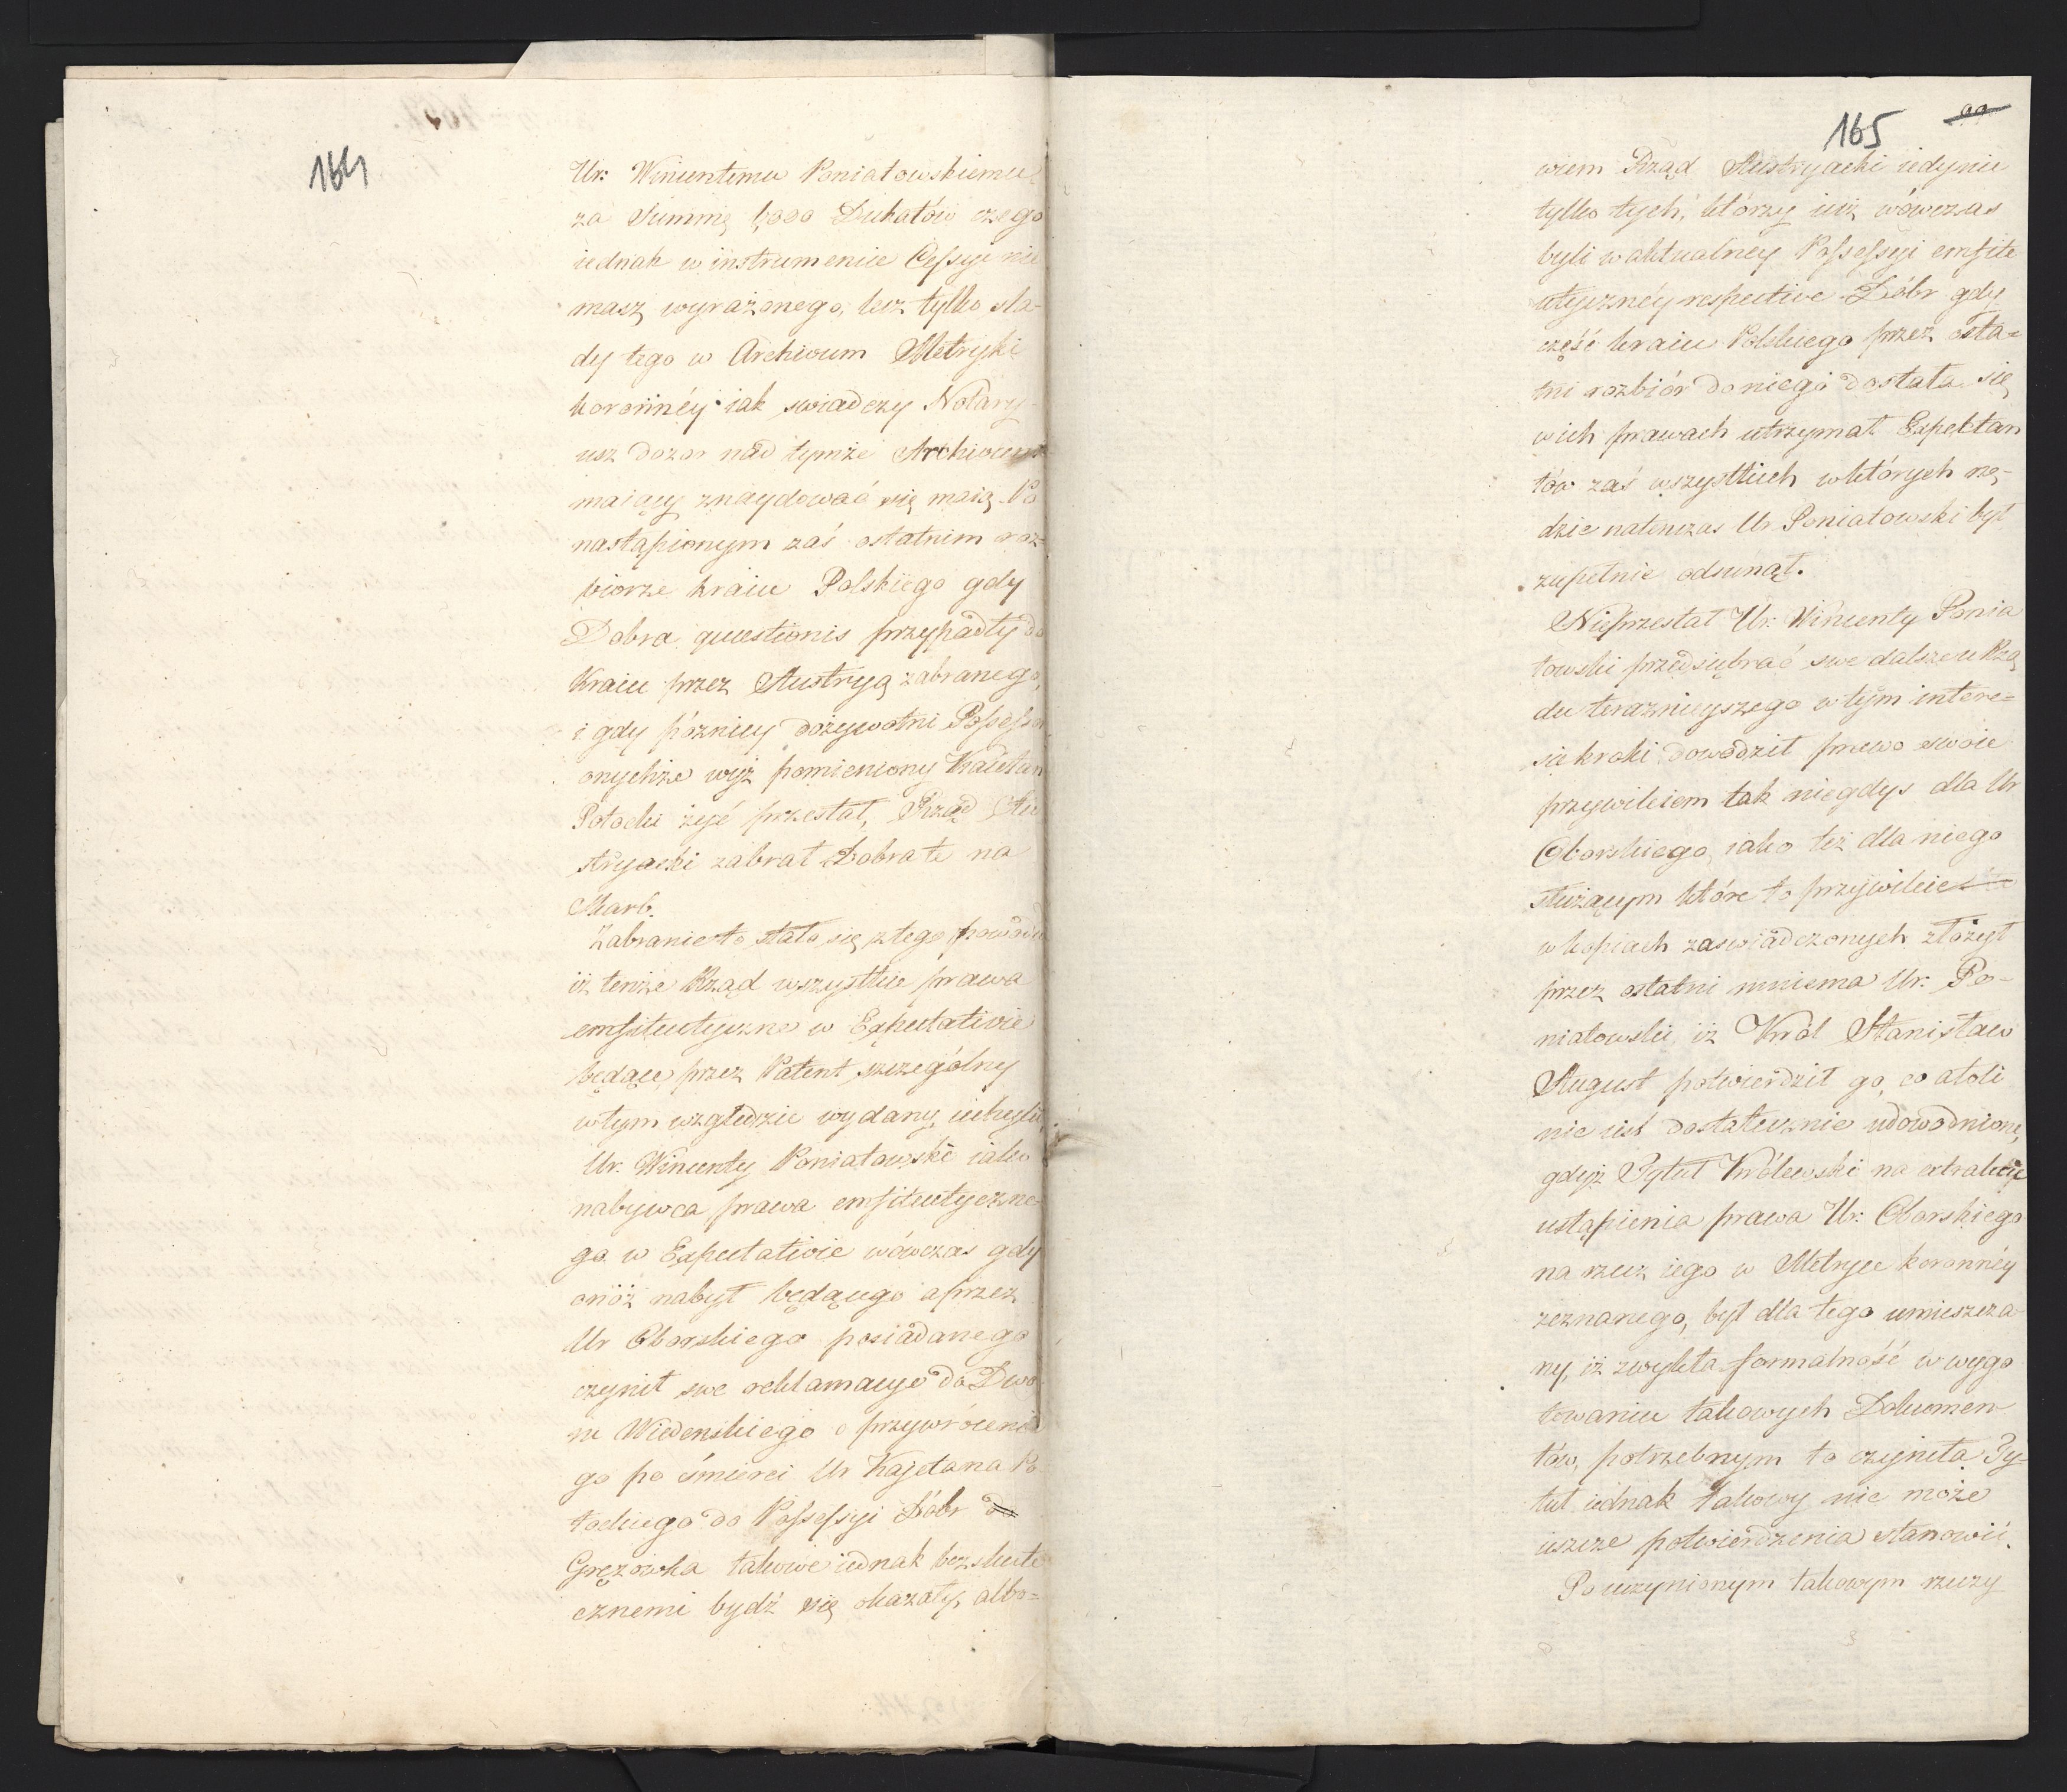 164
Ur: Wincentemu Poniatowskiemu
za Summę 6000 Dukatów czego
iednak w instrumencie Cessyi nie
masz wyrażonego, lecz tylko sla-
dy tego w Archivum Metryki
koronnéy iak swiadczy Notary-
usz dozor nad tymże Archivum
maiący znaydować się maią. Po
nastąpionym zaś ostatnim roz-
biorze kraiu Polskiego gdy
Dobra questionis przypadły do
Kraiu przez Austryą zabranego,
i gdy pózniey dożywotni Possessor
onychże wyż pomieniony Kaietan
Potocki żyć przestał, Rząd Au
stryacki zabrał Dobra te na
Skarb.
Zabranie to stało się z tego powodu
iż tenże Rząd wszystkie prawa
emfiteutyczne w Expektatiwie
będące, przez Patent szczególny
w tym względzie wydany, uchylił,
Ur. Wincenty Poniatowski iako
nabywca prawa emfiteutyczne-
go w Expectatiwie wówczas gdy
onóż nabył będącego a przez
Ur Oborskiego posiadanego
czynił swe reklamacye do Dwo-
ru Wiedenskiego o przywrócenie
go po śmierci Ur Kajetana Po
tockiego do Possessyi Dóbr d
Gręzowka takowe iednak bezskute
cznemi bydź się okazały, albo=
165
99
wiem Rząd Austryacki iedynie
tylko tych, którzy iuż wówczas
byli w aktualney Possessyi emfite
utycznéy respective Dóbr gdy
część kraiu Polskiego przez osta=
tni rozbiór do niego dostała się
w ich prawach utrzymał Expektan
tów zaś wszystkich w których rzę-
dzie natenczas Ur. Poniatowski był
zupełnie odsunął.
Nieprzestał Ur: Wincenty Ponia
towski przedsiębrać swe dalsze u Rzą
du teraznieyszego w tym intere=
sie kroki dowodził prawo swoie
przywileiem tak niegdys dla Ur
Oborskiego, iako też dla niego
służącym które to przywileie
w kopiach zaswiadczonych złożył
przez ostatni mniema Ur: Po-
niatowski, iż Król Stanisław
August potwierdził go, co atoli
nie iest dostatecznie udowodnione,
gdyż Tytuł Królewski na extrakcie
ustąpienia prawa Ur: Oborskiego
na rzecz iego w Metryce koronnéy
zeznanego, był dla tego umieszcza
ny, iż zwykła formalność w wygo
towaniu takowych Dokumen-
tów, potrzebnym to czyniła Ty-
tuł iednak takowy nie może
ieszcze potwierdzenia stanowić.
Po uczynionym takowym rzeczy